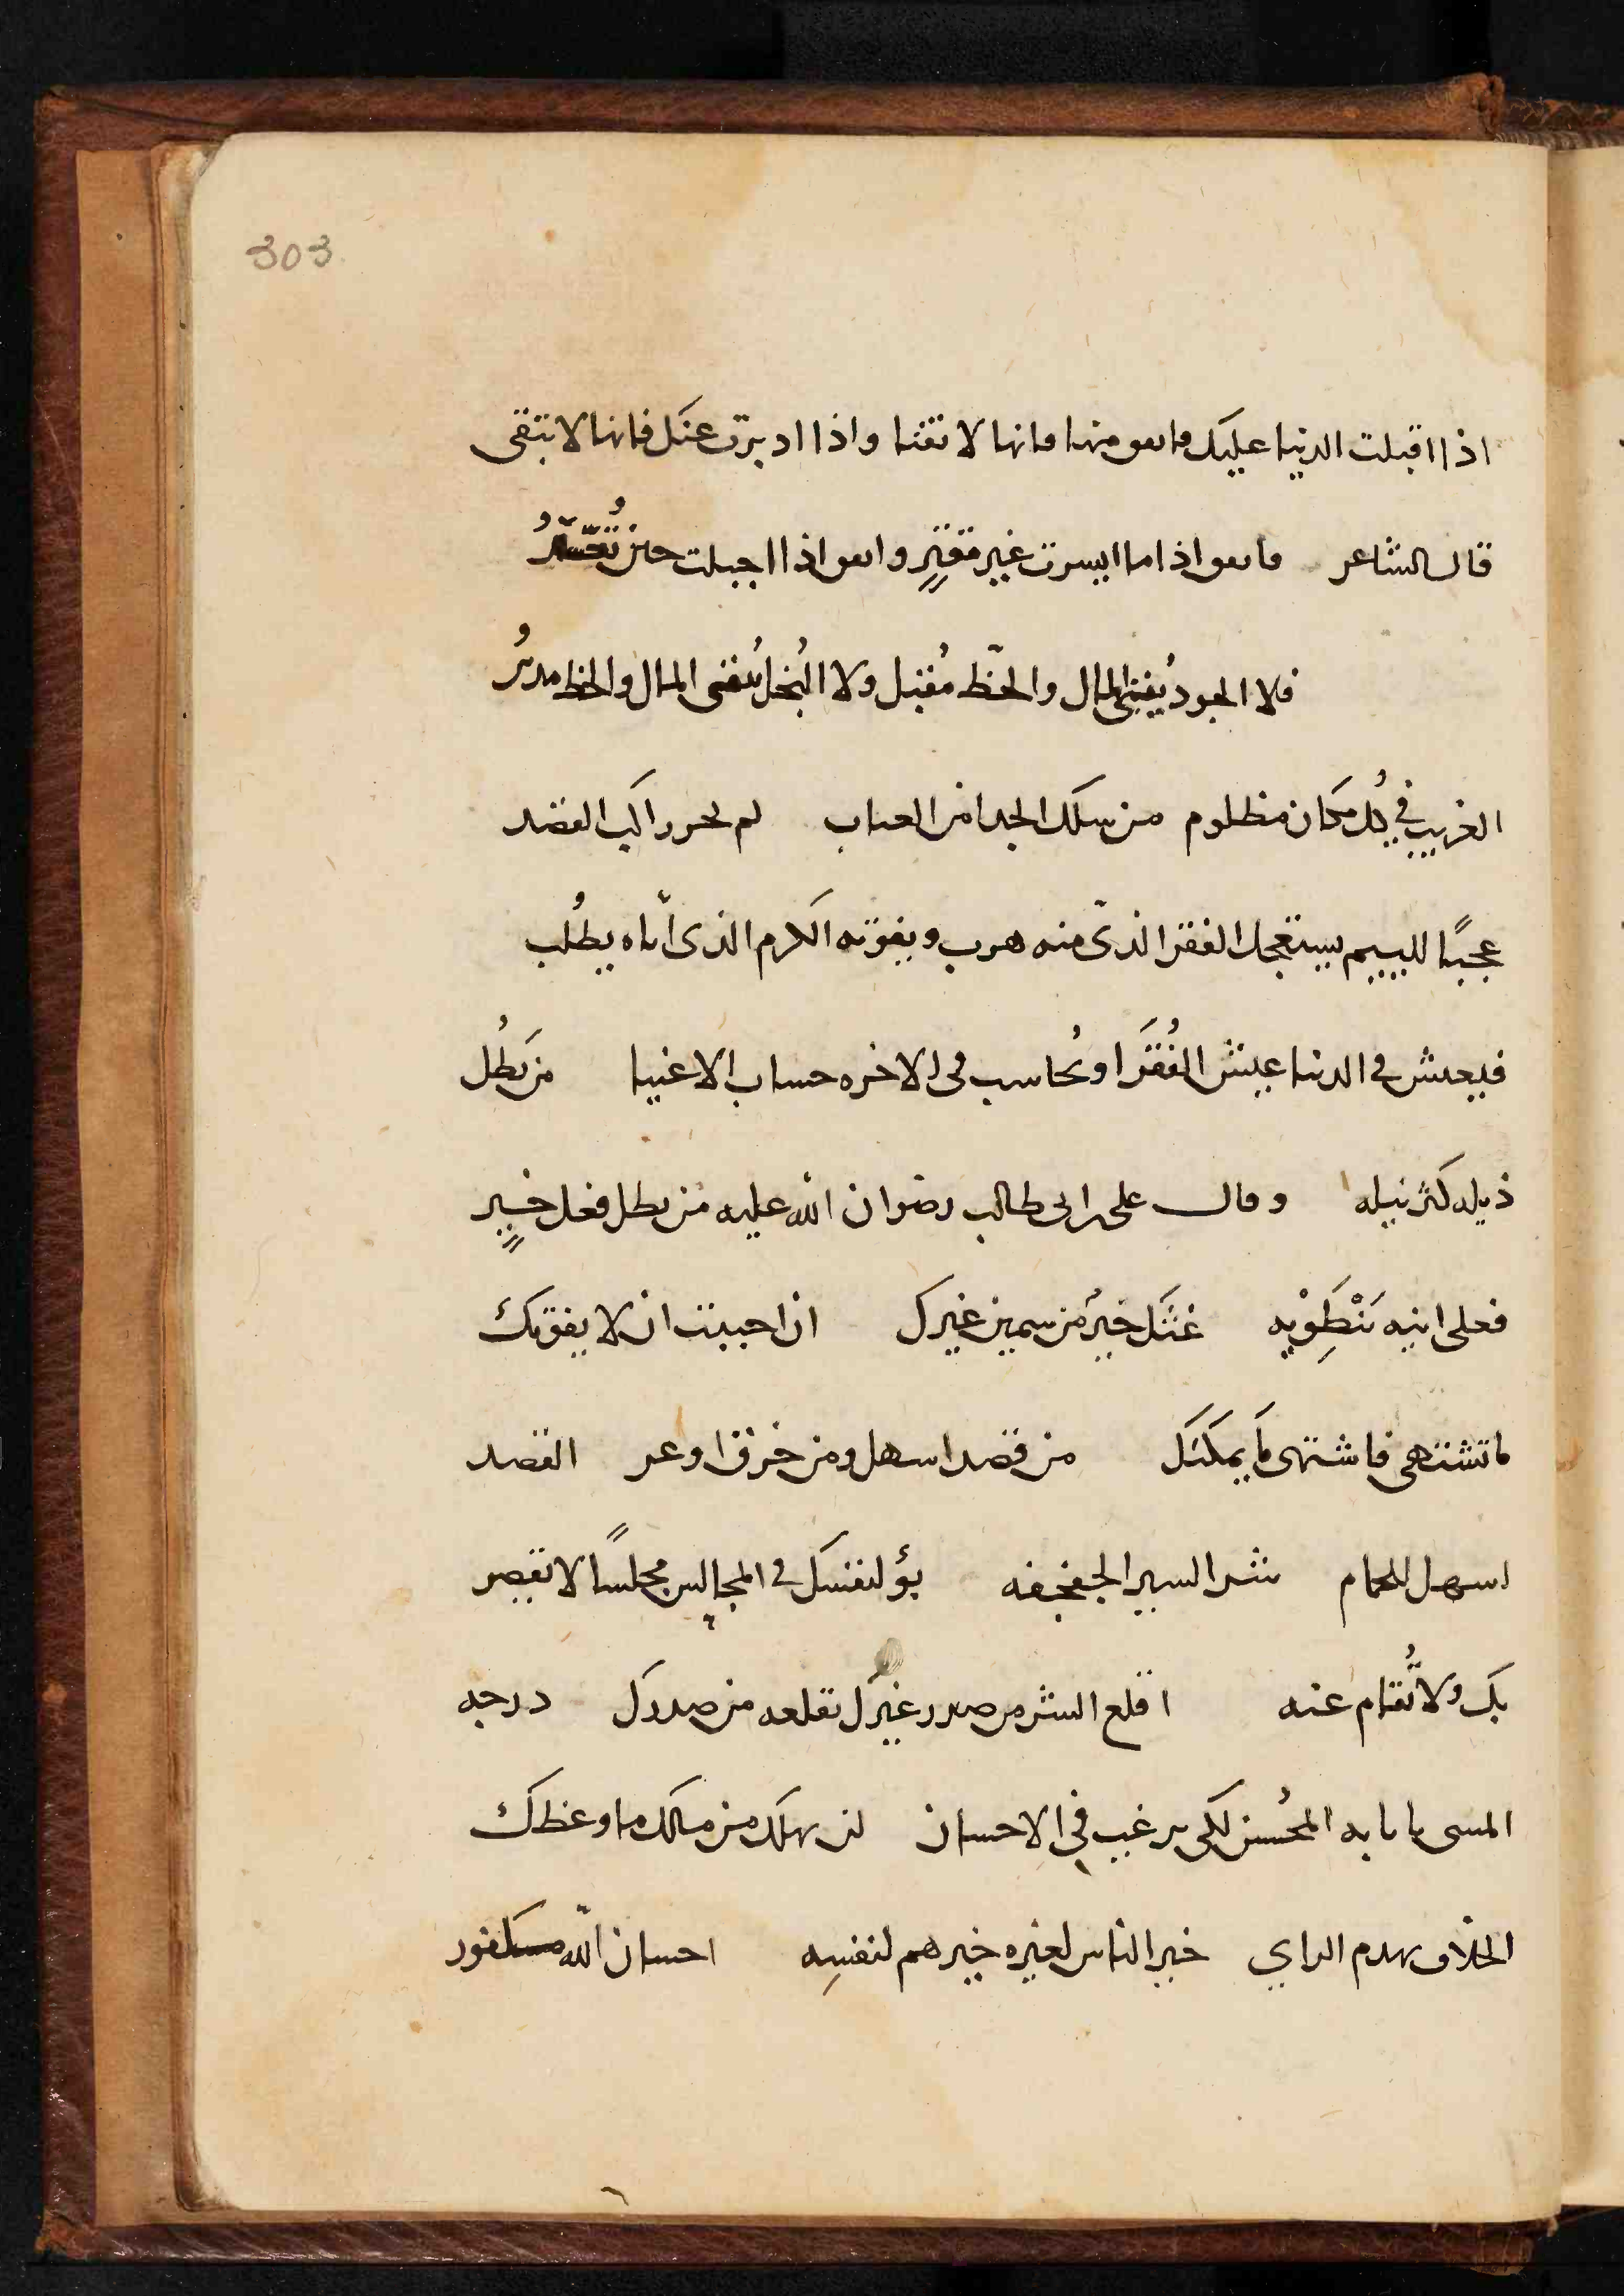 303
اذا اقبلت الدنيا عليك فانفق منها فانها لا تفنا واذا ادبرت عنك فانها لا تبقى
قال الشاعر فانفق اذا ما ايسرت غير مقترٍ وانفق اذا اجبلت حين تُعسّرُ
فلا الجود يُفني المال والحظّ مُقبل ولا البُخل يُبقى المال والحظ مدبرُ
الغريب في كُل مكان مظلوم من سلك الجدد امن العثار لم يجُر راكب القصد
عجبًا للييم يستعجل الفقر الذى منه هرب ويفوته الكرم الذى أياه يطلُب
فيعيش في الدنيا عيش الفُقَرا ويُحاسب فى الاخره حساب الاغنيا من يَطُل
ذيله كثر نيله وقال على بن ابى طالب رضوان الله عليه من يطل فعل خيرٍ
فعلى ابنيه يَنْطَوِيه غثك خيرٌ من سمين غيرك ان احببت ان لا يفوتك
ما تشتهى فاشتهى ما يمكنك من قصد اسهل ومن خرق اوعر القصد
اسهل للحمام شر السير الحقحقه بؤ لنفسك في المجالس مجلسًا لا تقصر
بك ولا تُقام عنه اقلع الشر من صدر غيرك بقلعه من صدرك درجه
المسى باثابه المحُسن لكى يرغب في الاحسان لن يهلك من مالك ما وعظك
الخلاف يهدم الراي خير الناس لغيره خيرهم لنفسِه احسان الله مكفور